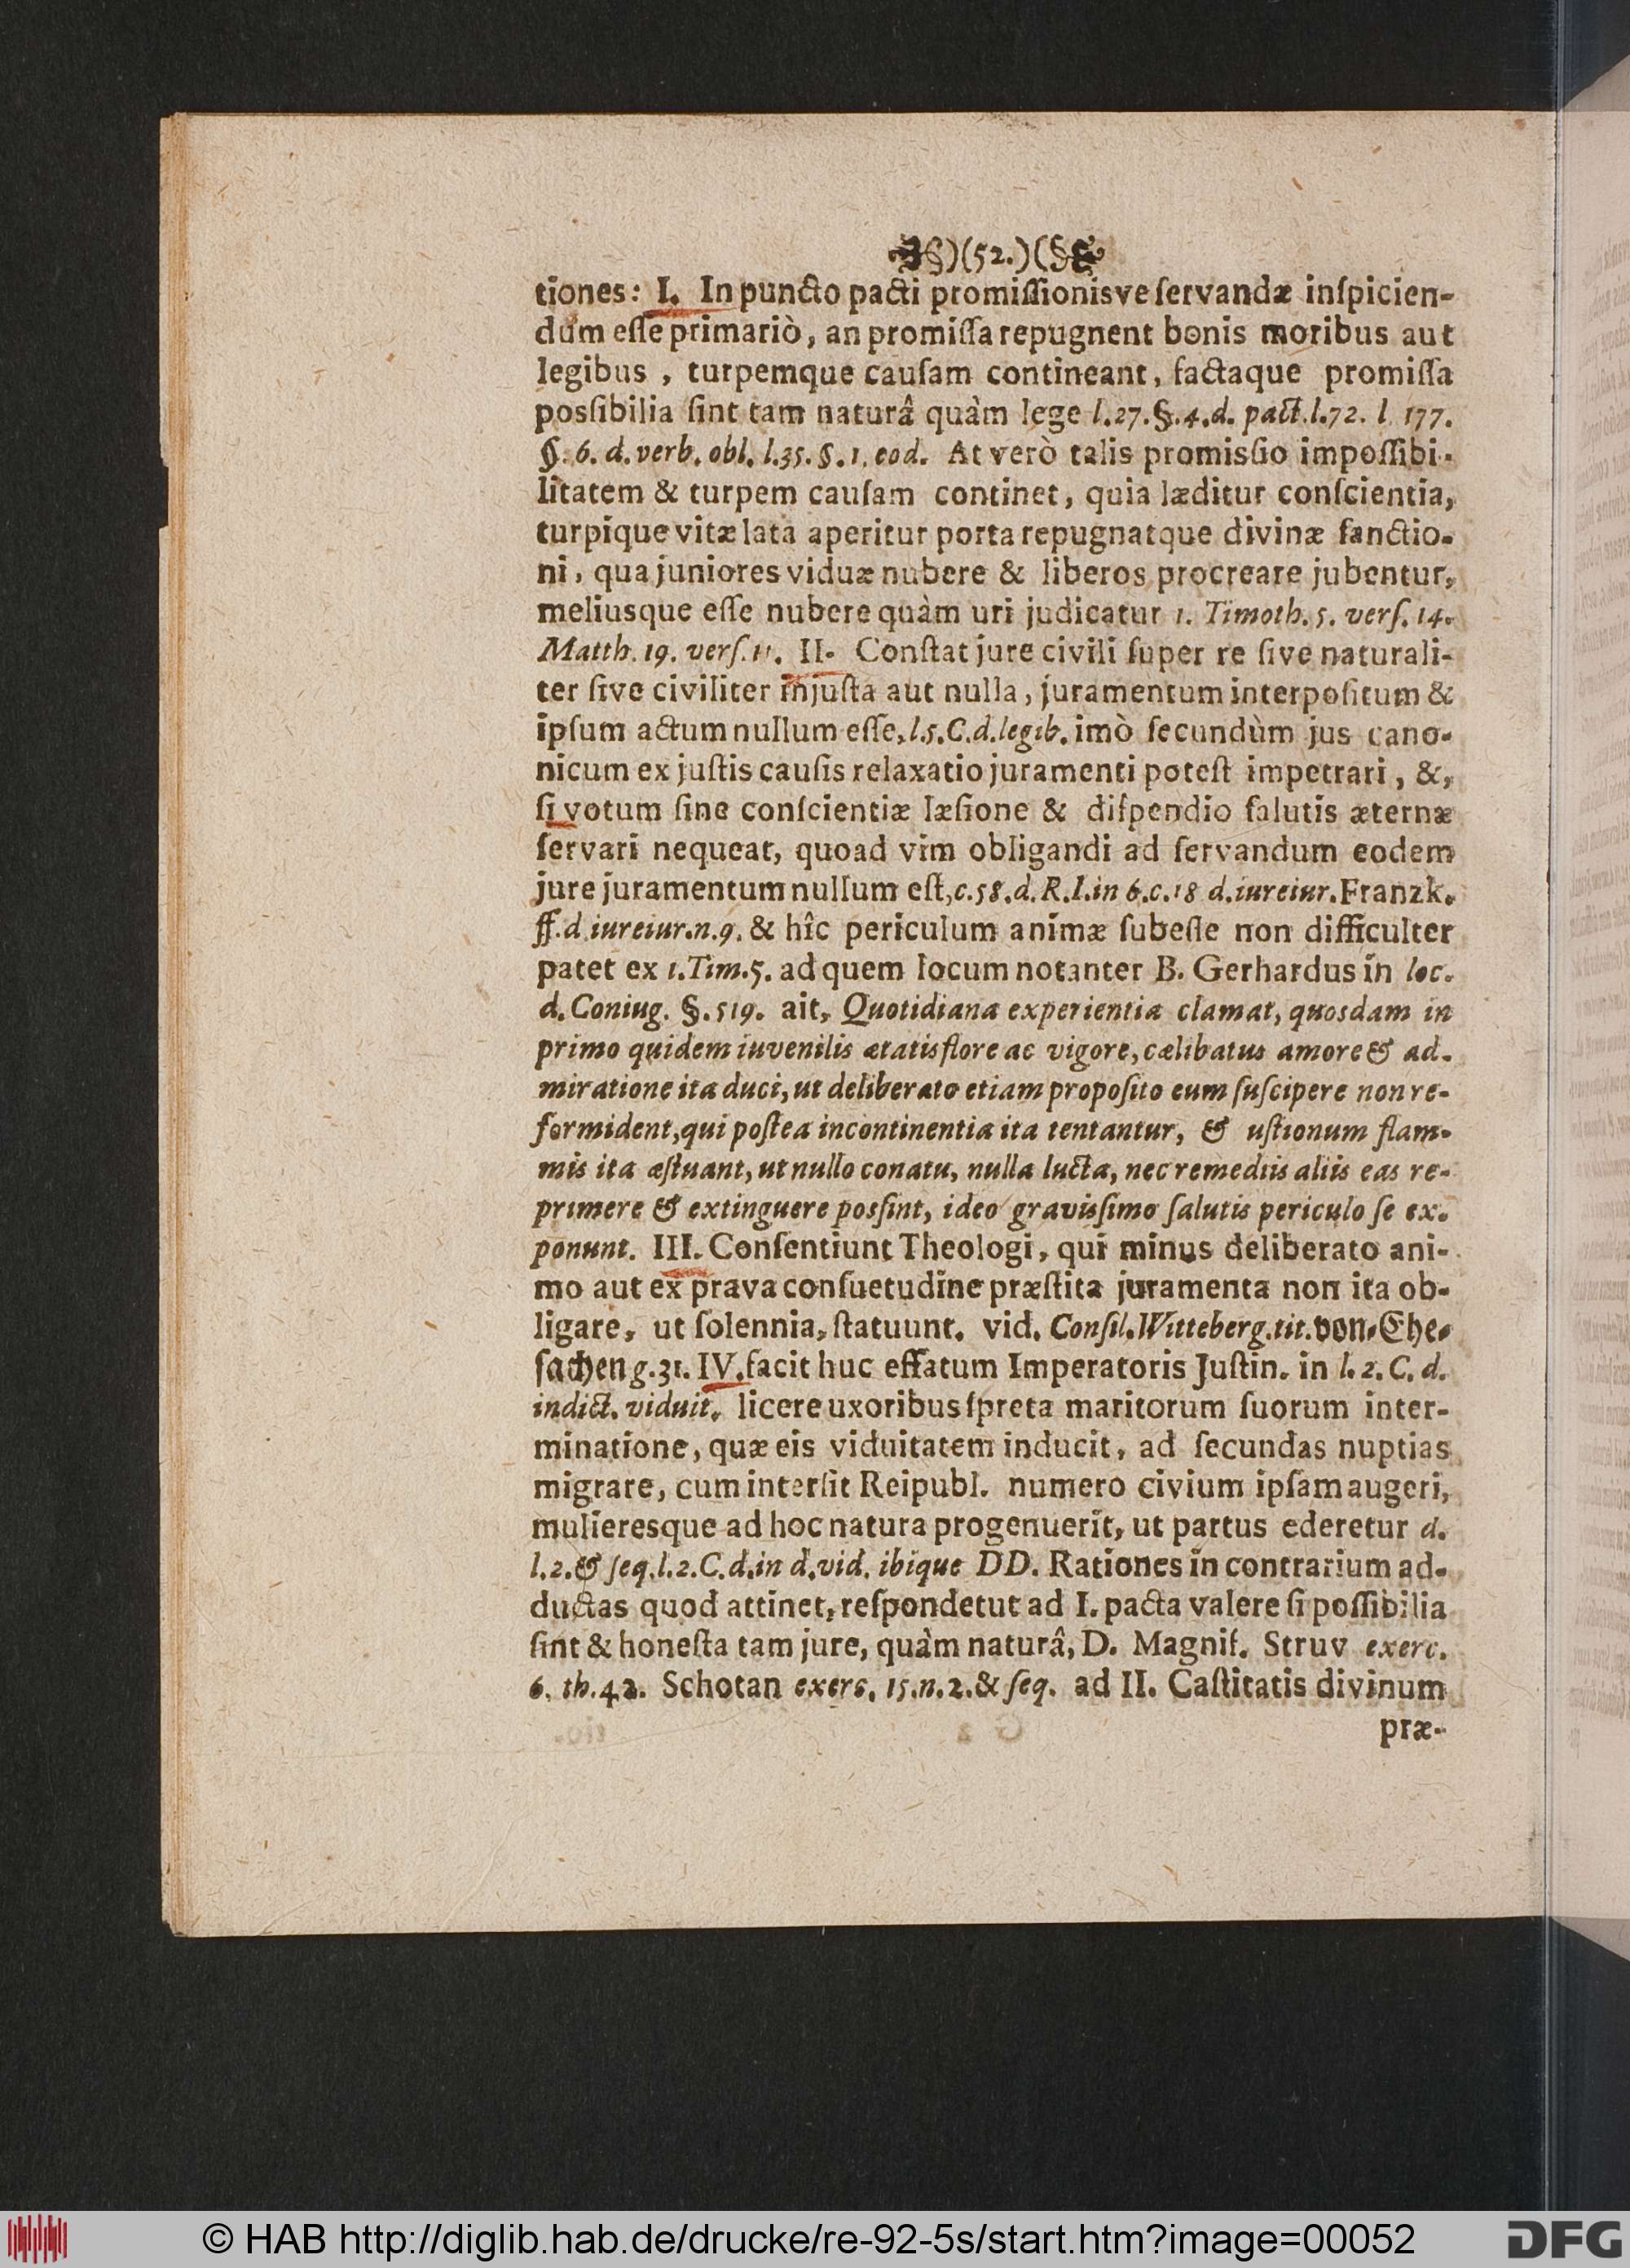 §)(52.)(§
tiones: I. In puncto pacti promiſſionisve ſervandæ inſpicien-
dum eſſe primariò, an promiſſa repugnent bonis moribus aut
legibus , turpemque cauſam contineant, factaque promiſſa
posſibilia ſint tam naturâ quàm lege l.27.§.4.d. pact.l.72. l 177.
§. 6. d. verb. obl. l.35. §. 1. eod. At verò talis promisſio impoſſibi-
litatem & turpem cauſam continet, quia læditur conſcientia,
turpique vitæ lata aperitur porta repugnatque divinæ ſanctio-
ni, qua juniores viduæ nubere & liberos procreare jubentur,
meliusque eſſe nubere quàm uri judicatur 1. Timoth. 5. verſ. 14.
Matth. 19. verſ. 11. II. Conſtat jure civili ſuper re ſive naturali-
ter ſive civiliter injuſta aut nulla, juramentum interpoſitum &
ipſum actum nullum eſſe, l.5.C.d.legib. imò ſecundùm jus cano-
nicum ex juſtis cauſis relaxatio juramenti poteſt impetrari, &,
ſi votum ſine conſcientiæ læſione & diſpendio ſalutis æternæ
ſervari nequeat, quoad vim obligandi ad ſervandum eodem
jure juramentum nullum eſt, c.58.d.R.I.in 6.c.18 d.iureiur. Franzk.
ff.d iureiur.n.9. & hîc periculum animæ ſubeſſe non difficulter
patet ex 1.Tim.5. ad quem locum notanter B. Gerhardus in loc.
d. Coniug. §. 519. ait, Quotidiana experientia clamat, quosdam in
primo quidem iuvenilis ætatis flore ac vigore, cælibatus amore & ad-
miratione ita duci, ut deliberato etiam propoſito eum ſuſcipere non re-
formident, qui poſtea incontinentia ita tentantur, & uſtionum flam-
mis ita æſtuant, ut nullo conatu, nulla lucta, nec remediis aliis eas re-
primere & extinguere posſint, ideo gravisſimo ſalutis periculo ſe ex-
ponunt. III. Conſentiunt Theologi, qui minus deliberato ani-
mo aut ex prava conſuetudine præſtita juramenta non ita ob-
ligare, ut ſolennia, ſtatuunt. vid. Conſil. Witteberg. tit. von-Ehe-
ſachen g. 31. IV. facit huc effatum Imperatoris Juſtin. in l. 2. C. d.
indict. viduit. licere uxoribus ſpreta maritorum ſuorum inter-
minatione, quæ eis viduitatem inducit, ad ſecundas nuptias
migrare, cum interſit Reipubl. numero civium ipſam augeri,
mulieresque ad hoc natura progenuerit, ut partus ederetur d.
l.2.& ſeq. l.2.C.d.in d.vid. ibique DD. Rationes in contrarium ad-
ductas quod attinet, reſpondetut ad I. pacta valere ſi poſſibilia
ſint & honeſta tam jure, quàm naturâ, D. Magnif. Struv exerc.
6. th. 42. Schotan exerc. 15.n.2.& ſeq. ad II. Caſtitatis divinum
præ-
© HAB http://diglib.hab.de/drucke/re-92-5s/start.htm?image=00052
DFG